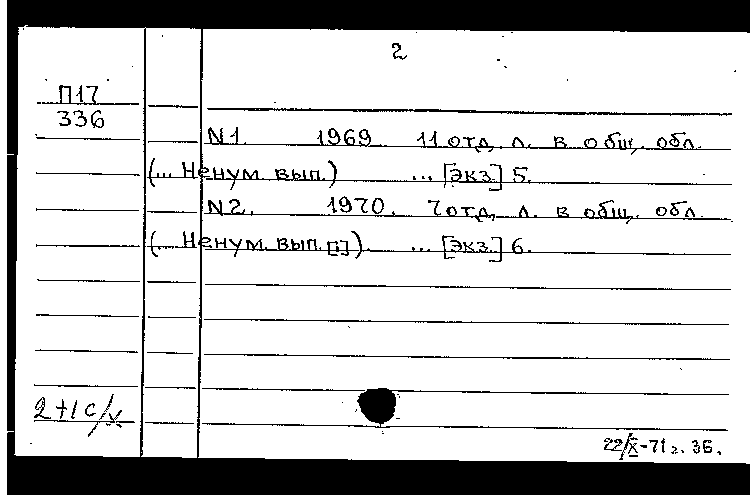 2
П17
336
N1. 1969 11 отд. л. в общ. обл.
(... Ненум. вып.) ... [Экз.] 5.
N2. 1970. 7 отд. л. в общ. обл.
(... Ненум. вып. [1]). ... [Экз.] 6.
2+1 с/х
22/X-71г. 36.